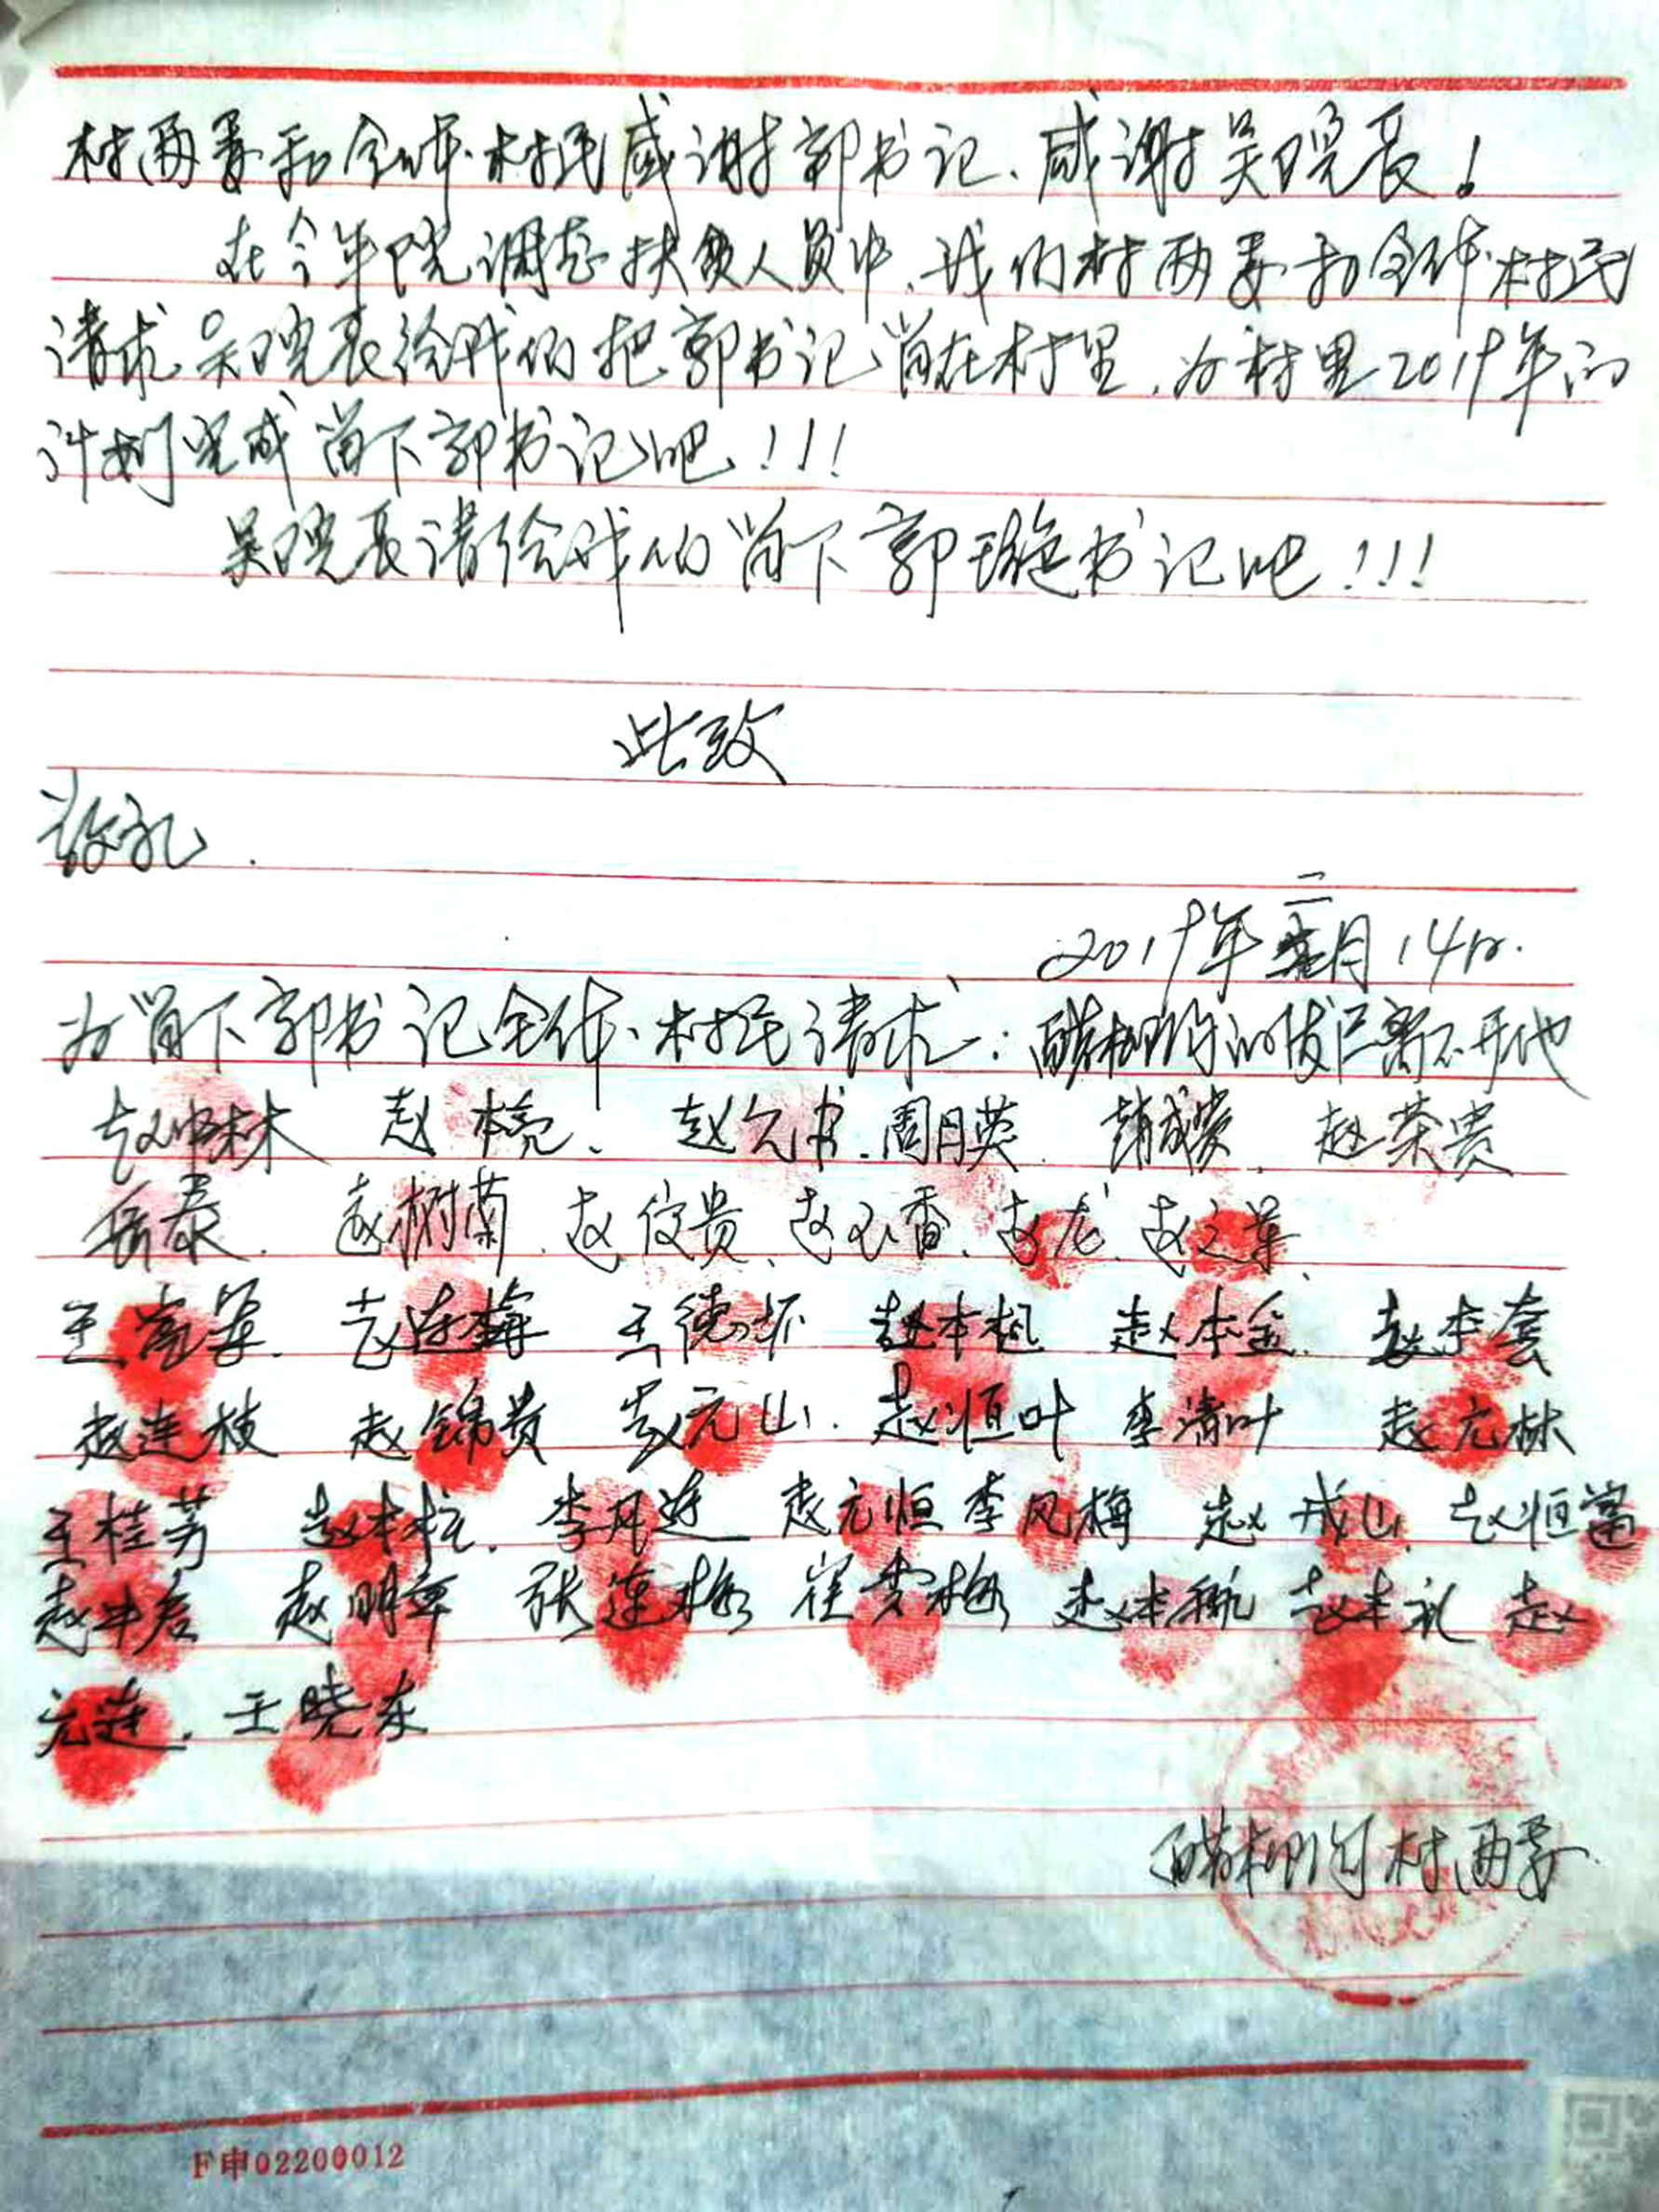 村两委和全体村民感谢郭书记、感谢吴院长！
在今年院调整扶贫人员中、我们村两委和全体村民
请求吴院长给我们把郭书记留在村里，为村里2019年的
计划完成留下郭书记吧！！！
吴院长请给我们留下郭璇书记吧！！！
此致
敬礼.
2019年二月14日.
为留下郭书记全体村民请求：醋柳沟的发展离不开他
赵 赵本亮、赵元书.周月英. 赵成贵. 赵荣贵
岳泰. 赵树菊.赵俊贵、赵玉香、赵龙.赵
王 赵连梅 王德怀 赵本枫 赵本金. 赵本套
赵连枝 赵锦贵 赵元山. 赵恒叶 李清叶 赵元林
王桂芳 赵本柱. 李月连 赵元恒 李凤梅 赵成山 赵恒富
赵中启 赵明章 张连梅 崔贵梅 赵本礼 赵
元连. 王晓东
醋柳沟村两委.
F申02200012